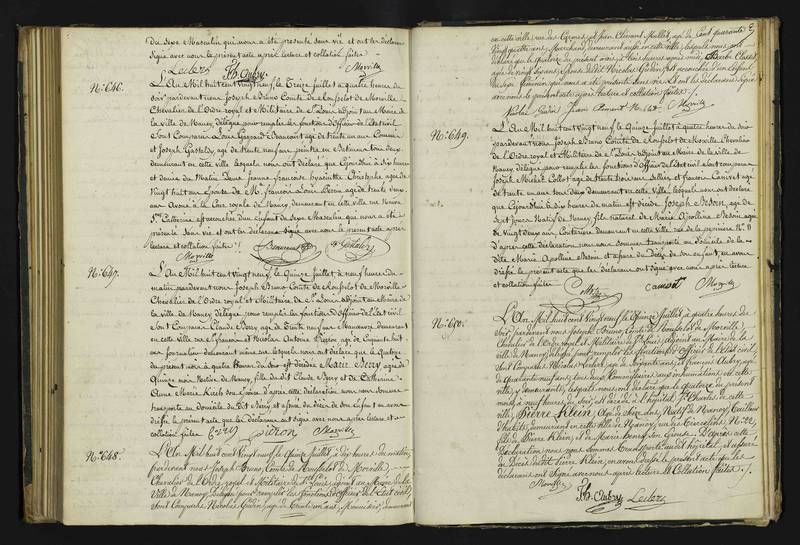 du sexe Masculin qui nous a été présenté sans vie et ont les déclarans
Signé avec nous le présent acte après lecture et collation faites
Leclerc Fh. Aubry Morville
N.° 646.
L'An Mil huit cent vingt neuf, le Treize Juillet à quatre heures du
soir pardevant nous Joseph Bruno Comte de Rouffelot de Morville
Chevalier de l'Ordre royal et Militaire de St. Louis adjoint au Maire de
la ville de Nancy, délégué pour remplir les fonctions d'Officier de l'état civil
Sont Comparus Louis agé de trente un ans Commis
et Joseph Gastaldy, agé de trente neuf ans peintre en Batiment tous deux
demeurant en cette ville lesquels nous ont déclaré que Ce jourd'hui à dix heures
et demie du Matin Dame Jeanne françoise hyacinthe Christophe agée de
Vingt huit ans Epouse de M. françois Louis agé de trente deux
ans Avoué à la Cour royale de Nancy, demeurant en cette ville rue Neuve
Ste. Catherine est accouchée d'un Enfant du Sexe Masculin qui nous a été
présenté Sans vie et ont les déclarans Signé avec nous le présent acte après
lecture et collation faites ./.
Morville
N.° 647.
L'An Mil huit cent vingt neuf, le Quinze Juillet à neuf heures du
matin pardevant nous Joseph Bruno Comte de Rouffelot de Morville
Chevalier de l'Ordre royal et Militaire de St. Louis adjoint au Maire de
la ville de Nancy délégué pour remplir les fonctions d'Officier de l'état civil
Sont Comparus Claude Berry agé de trente neuf ans Manœuvre demeurant
en cette ville rue St. françois et Nicolas Antoine Pieron agé de Cinquante huit
ans Journalier demeurant même rue lesquels nous ont déclaré que le Quatorze
du présent mois à quatre heures du soir est décédée Marie Berry agée de
Quinze mois Native de Nancy, fille dudit Claude Berry et de Catherine
Anne Marie son Epouse. D'après cette déclaration nous nous sommes
transporté au domicile dudit Berry et assuré du décès de son Enfant en avons
dressé le présent acte que les déclarans ont Signé avec nous après lecture et
collation faites Berry Pieron Morville
N.° 648.
L'An Mil huit cent Vingt neuf, le Quinze Juillet, à dix heures du matin,
pardevant nous Joseph Bruno, Comte de Rouffelot de Morville,
Chevalier de l'Ordre royal et Militaire de St. Louis, adjoint au Maire de la
Ville de Nancy, délégué pour remplir les fonctions d'Officier de l'Etat civil,
Sont Comparus Nicolas Gudin, agé de Trente ans, Menuisier, demeurant
en cette ville, rue des et Jean Clément Mallet, agé de Cent quarante
Vingt quatre ans, Marchand, demeurant aussi en cette ville, lesquels nous ont
déclaré que le quatorze du présent mois, à trois heures après midi, Barbe
agée de vingt six ans, Epouse dudit Nicolas Gudin, est accouchée d'un Enfant
du Sexe féminin qui nous a été présenté sans vie. Et ont les déclarans Signé
avec nous le présent acte après lecture et Collation faites ./.
Nicolas Gudin Morville
N.° 649.
L'An Mil huit cent vingt neuf le Quinze Juillet à quatre heures du soir
pardevant nous Joseph Bruno Comte de Rouffelot de Morville Chevalier
de l'Ordre royal et Militaire de St. Louis adjoint au Maire de la ville de
Nancy, délégué pour remplir les fonctions d'Officier de l'état civil Sont Comparus
Joseph Michel Collot agé de trente trois ans Sellier et francois agé
de trente un ans tous deux demeurant en cette Ville, lesquels nous ont déclaré
que Ce jourd'hui à dix heures du matin est décédé Joseph Besson, agé de
Sept jours Natif de Nancy, fils naturel de Marie Apolline Besson agée
de Vingt deux ans, Couturière demeurant en cette Ville rue de la pépinière N.°
D'après cette déclaration nous nous sommes transporté au domicile de la
dite Marie Apolline Besson et assuré du décès de son enfant, en avons
dressé le présent acte que les déclarans ont Signé avec nous après lecture
et collation faites Collot Morville
N.° 650.
L'An Mil huit cent Vingt neuf, le Quinze Juillet, à quatre heures du
Soir, pardevant nous Joseph Bruno, Comte de Rouffelot de Morville,
Chevalier de l'Ordre royal et Militaire de St. Louis, adjoint au Maire de la
ville de Nancy, délégué pour remplir les fonctions d'Officier de l'Etat civil,
Sont Comparus Nicolas Leclerc, agé de Soixante ans, et francois Aubry, agé
de Quarante neuf ans, tous deux à l'hôpital de cette
ville, y demeurant, lesquels nous ont déclaré que le quatorze du présent
mois, à neuf heures du Soir, est décédé à l'hôpital St. Charles de cette
ville, Pierre Klein, Agé de Seize ans, Natif de Nancy, Tailleur
d'habits, demeurant en cette ville de Nancy, rue des N.° 22,
fils de Pierre Klein, et de Marie son Epouse. D'après cette
déclaration nous nous sommes transporté audit hôpital et assuré
du Décès dudit Pierre Klein, en avons dressé le présent acte que les
déclarans ont Signé avec nous, après lecture et Collation faites ./.
Morville
Fh. Aubry Leclerc